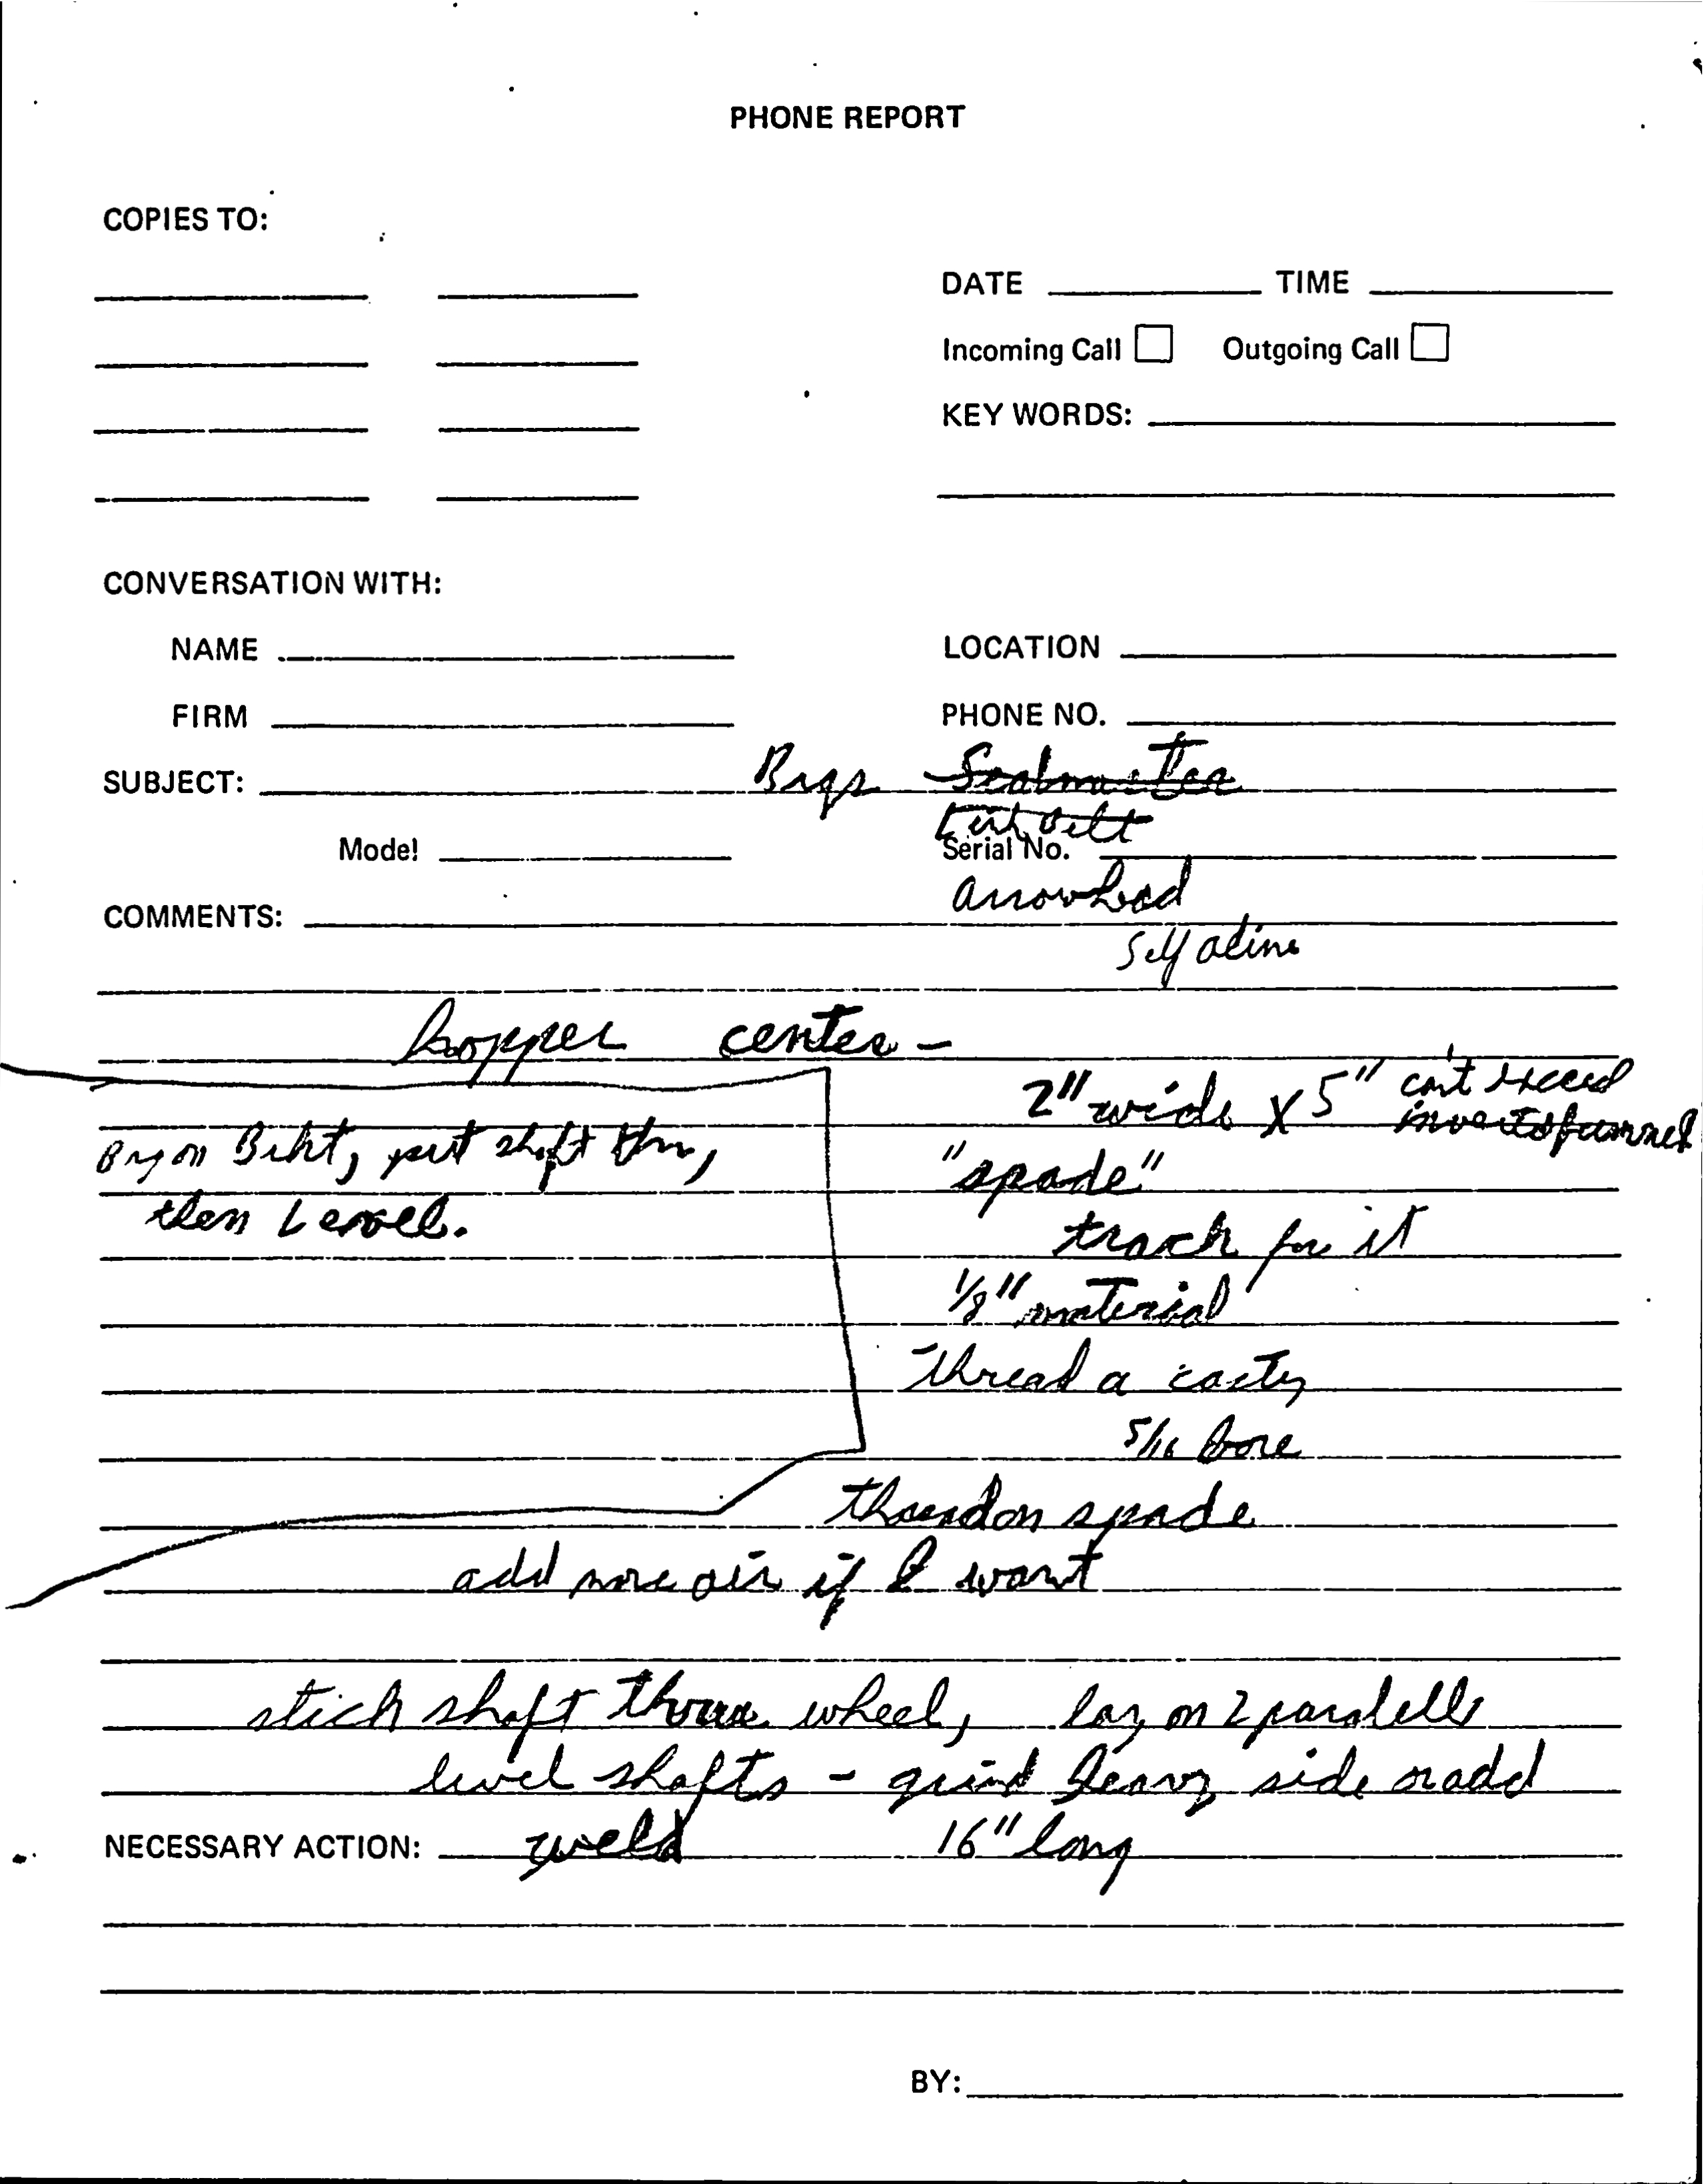 PHONE REPORT
COPIES TO:
DATE TIME
Incoming Call Outgoing Call
KEY WORDS:
CONVERSATION WITH:
NAME LOCATION
FIRM PHONE NO.
SUBJECT: Brgs Sealmaster
Link Belt
Model Serial No.
arrowhead
COMMENTS:
Self aline
hopper center -
2" wide x 5" can't exceed
invert of funnel
put shaft thru,
"spade"
then Level.
track for it
1/8" material
thread a
5/16 bore
thread on spade
add more air if I want
stick shaft wheel, lay on 2 paralells
level shafts - grind heavy side or add
NECESSARY ACTION: weld 16" long
BY: